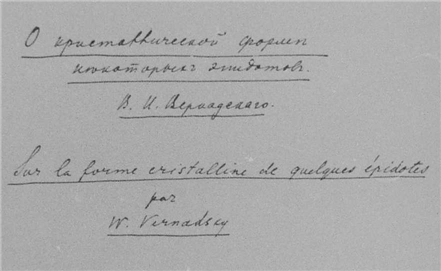 О кристаллической форме
некоторых эпидотов.
В. И. Вернадского.
Sur la forme cristalline de quelques épidotes
par
W. Vernadsky